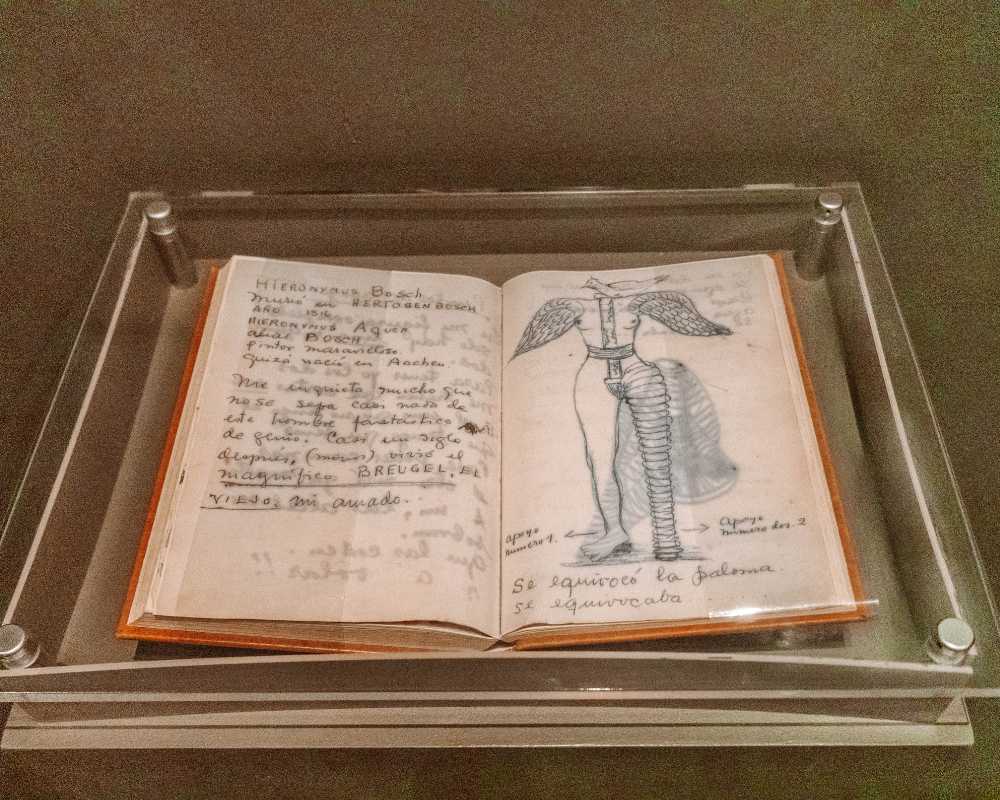 HIERONYMUS Bosch
murió en HERTOGENBOSCH
AÑO 1516
HIERONYMUS AQUEN
alias BOSCH
pintor maravilloso.
quizá nació en Aachen.
Me inquieta mucho que
no se sepa casi nada de
este hombre fantástico
de genio. Casi un siglo
después, (menos) vivió el
magnífico BREUGEL, EL
VIEJO, mi amado.
apoyo
numero 1.
Apoyo
numero dos. 2
Se equivocó la paloma.
se equivocaba